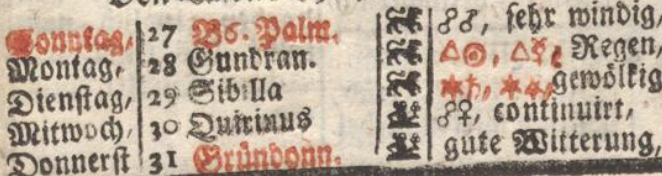 Sonntag, 27 B6. Palm. ☍♂, sehr windig,
Montag, 28 Gundran. △☉, △☿, Regen,
Dienstag, 29 Sibilla ✶♄, gewölkig
Mitwoch, 30 Quirinus ☍♀, continuirt,
Donnerst 31 Gründonn. gute Witterung,